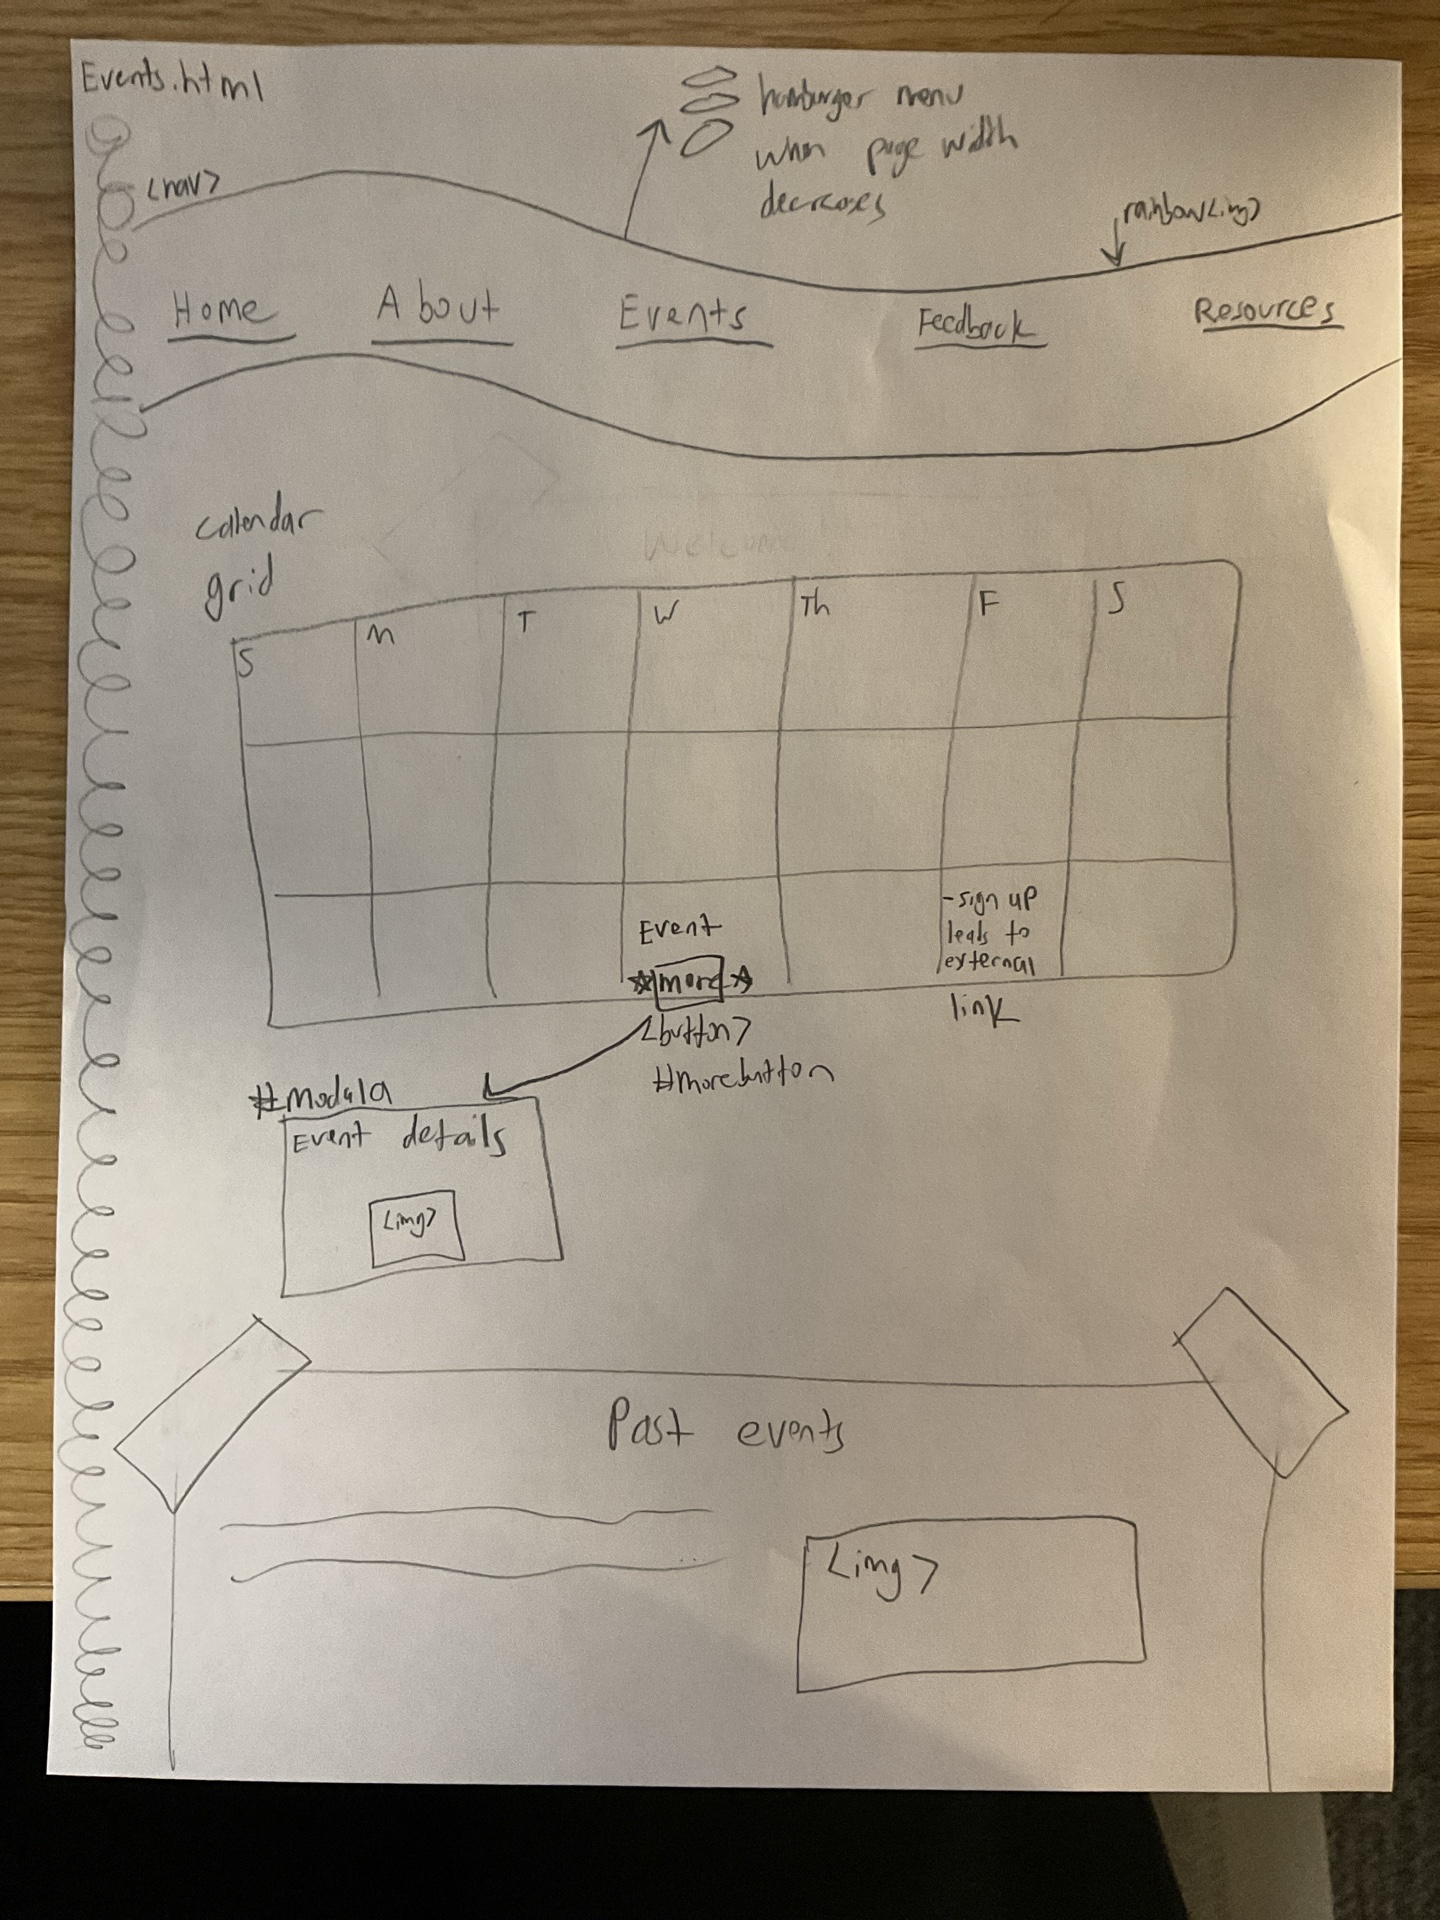 Events.html
hamburger menu
when page width
decreases
<nav>
rainbow<img>
Home About Events Feedback Resources
calendar
grid
Welcome
S M T W Th F S
Event
more
-sign up
leads to
external
link
<button>
#morebutton
#modala
Event details
<img>
Past events
<img>